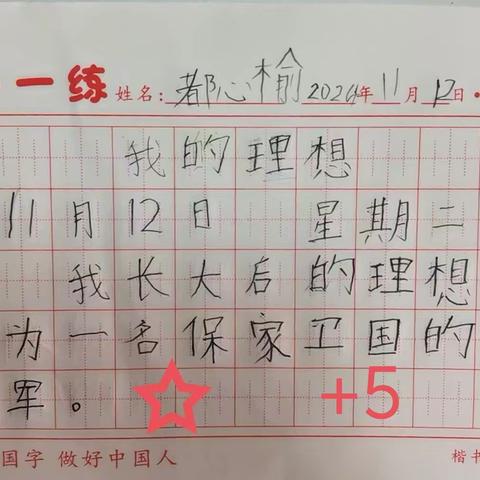 一练 姓名：都心榆 2024年11月12日
我的理想
11月12日 星期二
我长大后的理想
为一名保家卫国的
军。
+5
国字 做好中国人 楷书